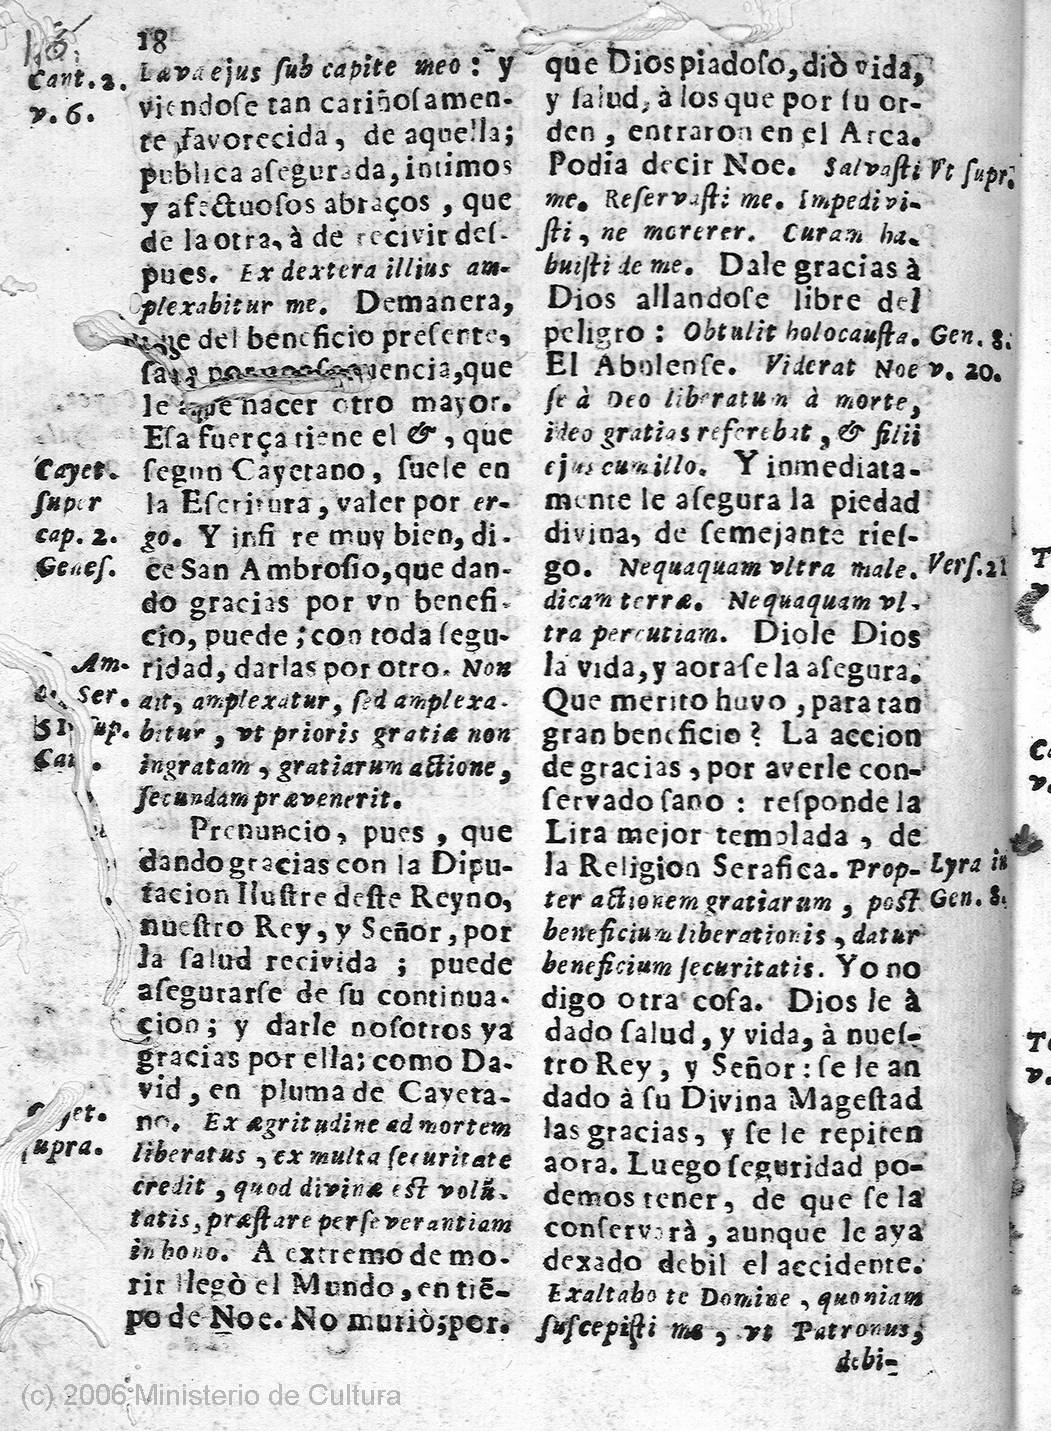 18
Cant. 2.
v. 6.
Læva ejus ſub capite meo : y
viendoſe tan cariñoſamen-
te favorecida, de aquella;
publica aſegurada, intimos
y afectuoſos abraços, que
de la otra, à de recivir deſ-
pues. Ex dextera illius am-
plexabitur me. Demanera,
que del beneficio preſente,
que
le nacer otro mayor.
Eſa fuerça tiene el &, que
Cayet.
ſuper
cap. 2.
Geneſ.
ſegun Cayetano, ſuele en
la Eſcritura, valer por er-
go. Y infi re muy bien, di-
ce San Ambroſio, que dan-
do gracias por vn benefi-
cio, puede; con toda ſegu-
Am-
ſer.
ſup.
ridad, darlas por otro. Non
ait, amplexatur, ſed amplexa-
bitur, vt prioris gratiæ non
ingratam, gratiarum actione,
ſecundam prævenerit.
Prenuncio, pues, que
dando gracias con la Dipu-
tacion Iluſtre deſte Reyno,
nueſtro Rey, y Señor, por
la ſalud recivida ; puede
aſegurarſe de ſu continua-
cion; y darle noſotros ya
gracias por ella; como Da-
vid, en pluma de Cayeta-
ſupra.
no. Ex ægritudine ad mortem
liberatus, ex multa ſecuritate
credit, quod divinæ eſt volũ-
tatis, præſtare perſeverantiam
in bono. A extremo de mo-
rir llegò el Mundo, en tiẽ-
po de Noe. No muriò; por-
que Dios piadoſo, diò vida,
y ſalud, à los que por ſu or-
den, entraron en el Arca.
Podia decir Noe. Salvaſti
me. Reſervaſti me. Impedivi-
ſti, ne morerer. Curam ha-
buiſti de me. Dale gracias à
Dios allandoſe libre del
peligro : Obtulit holocauſta.
El Abulenſe. Viderat Noe
ſe à Deo liberatum à morte,
ideo gratias referebat, & filii
ejus cum illo. Y inmediata-
mente le aſegura la piedad
divina, de ſemejante rieſ-
go. Nequaquam vltra male-
dicam terræ. Nequaquam vl-
tra percutiam. Diole Dios
la vida, y aora ſe la aſegura.
Que merito huvo, para tan
gran beneficio? La accion
de gracias, por averle con-
ſervado ſano : reſponde la
Lira mejor templada, de
la Religion Serafica. Prop-
ter actionem gratiarum, poſt
beneficium liberationis, datur
beneficium ſecuritatis. Yo no
digo otra coſa. Dios le à
dado ſalud, y vida, à nueſ-
tro Rey, y Señor: ſe le an
dado à ſu Divina Mageſtad
las gracias, y ſe le repiten
aora. Luego ſeguridad po-
demos tener, de que ſe la
conſervarà, aunque le aya
dexado debil el accidente.
Exaltabo te Domine, quoniam
ſuſcepiſti me, vt Patronus,
debi-
Vt ſupr.
Gen. 8.
v. 20.
Verſ. 21
Lyra in
Gen. 8.
(c) 2006 Ministerio de Cultura